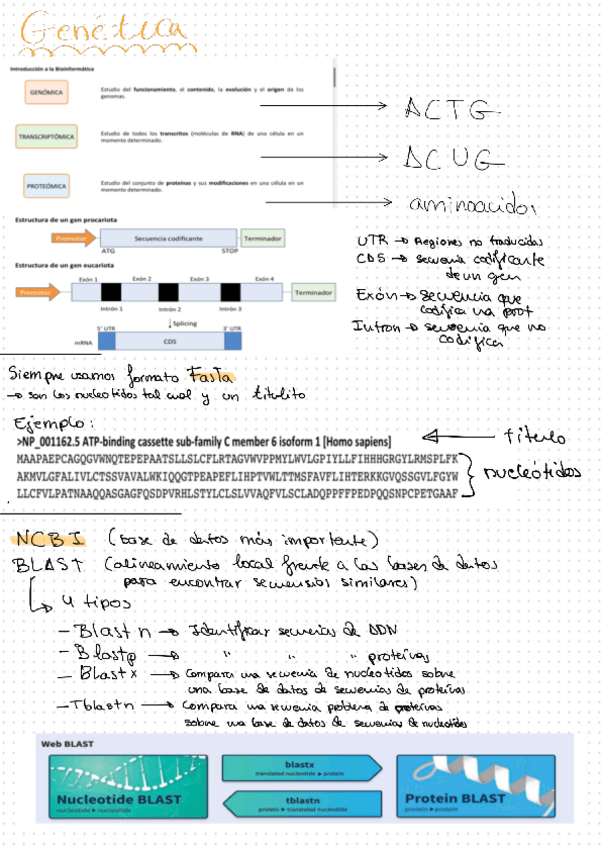 Genética
Introducción a la Bioinformática
GENÓMICA
Estudio del funcionamiento, el contenido, la evolución y el origen de los genomas.
ACTG
TRANSCRIPTÓMICA
Estudio de todos los transcritos (moléculas de RNA) de una célula en un momento determinado.
ACUG
PROTEÓMICA
Estudio del conjunto de proteínas y sus modificaciones en una célula en un momento determinado.
aminoacidos
Estructura de un gen procariota
Promotor
Secuencia codificante
Terminador
ATG
STOP
Estructura de un gen eucariota
Exón 1
Exón 2
Exón 3
Exón 4
Promotor
Terminador
Intrón 1
Intrón 2
Intrón 3
Splicing
5' UTR
3' UTR
mRNA
CDS
UTR → Regiones no traducidas
CDS → secuencia codificante
de un gen
Exón → secuencia que
codifica una prot
Intron → secuencia que no
codifica
Siempre usamos formato Fasta
→ son los nucleótidos tal cual y un titulito
Ejemplo:
>NP_001162.5 ATP-binding cassette sub-family C member 6 isoform 1 [Homo sapiens]
← título
MAAPAEPCAGQGVWNQTEPEPAATSLLSLCFLRTAGVWVPPMYLWVLGPIYLLFIHHHGRGYLRMSPLFK
AKMVLGFALIVLCTSSVAVALWKIQQGTPEAPEFLIHPTVWLTTMSFAVFLIHTERKKGVQSSGVLFGYW
LLCFVLPATNAAQQASGAGFQSDPVRHLSTYLCLSLVVAQFVLSCLADQPPFFPEDPQQSNPCPETGAAF
nucleótidos
NCBI (base de datos más importante)
BLAST (alineamiento local frente a las bases de datos
para encontrar secuencias similares)
4 tipos
- Blastn → Identificar secuencias de ADN
- Blastp → " " " proteínas
- Blastx → Compara una secuencia de nucleotidos sobre
una base de datos de secuencias de proteínas
- Tblastn → Compara una secuencia problema de proteínas
sobre una base de datos de secuencias de nucleotidos
Web BLAST
Nucleotide BLAST
nucleotide ▸ nucleotide
blastx
translated nucleotide ▸ protein
tblastn
protein ▸ translated nucleotide
Protein BLAST
protein ▸ protein